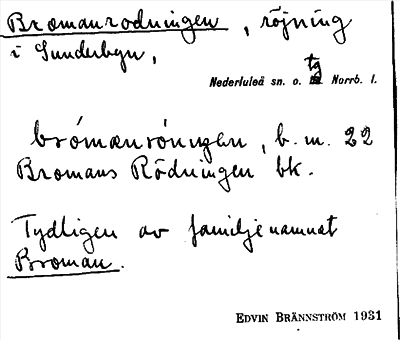 Bromanrödningen, röjning
i Sunderbyn,
Nederluleå sn. o. tg Norrb. l.
brómanröningen, b. m. 22
Bromans Rödningen bk.
Tydligen av familjenamnet
Broman.
EDVIN BRÄNNSTRÖM 1931